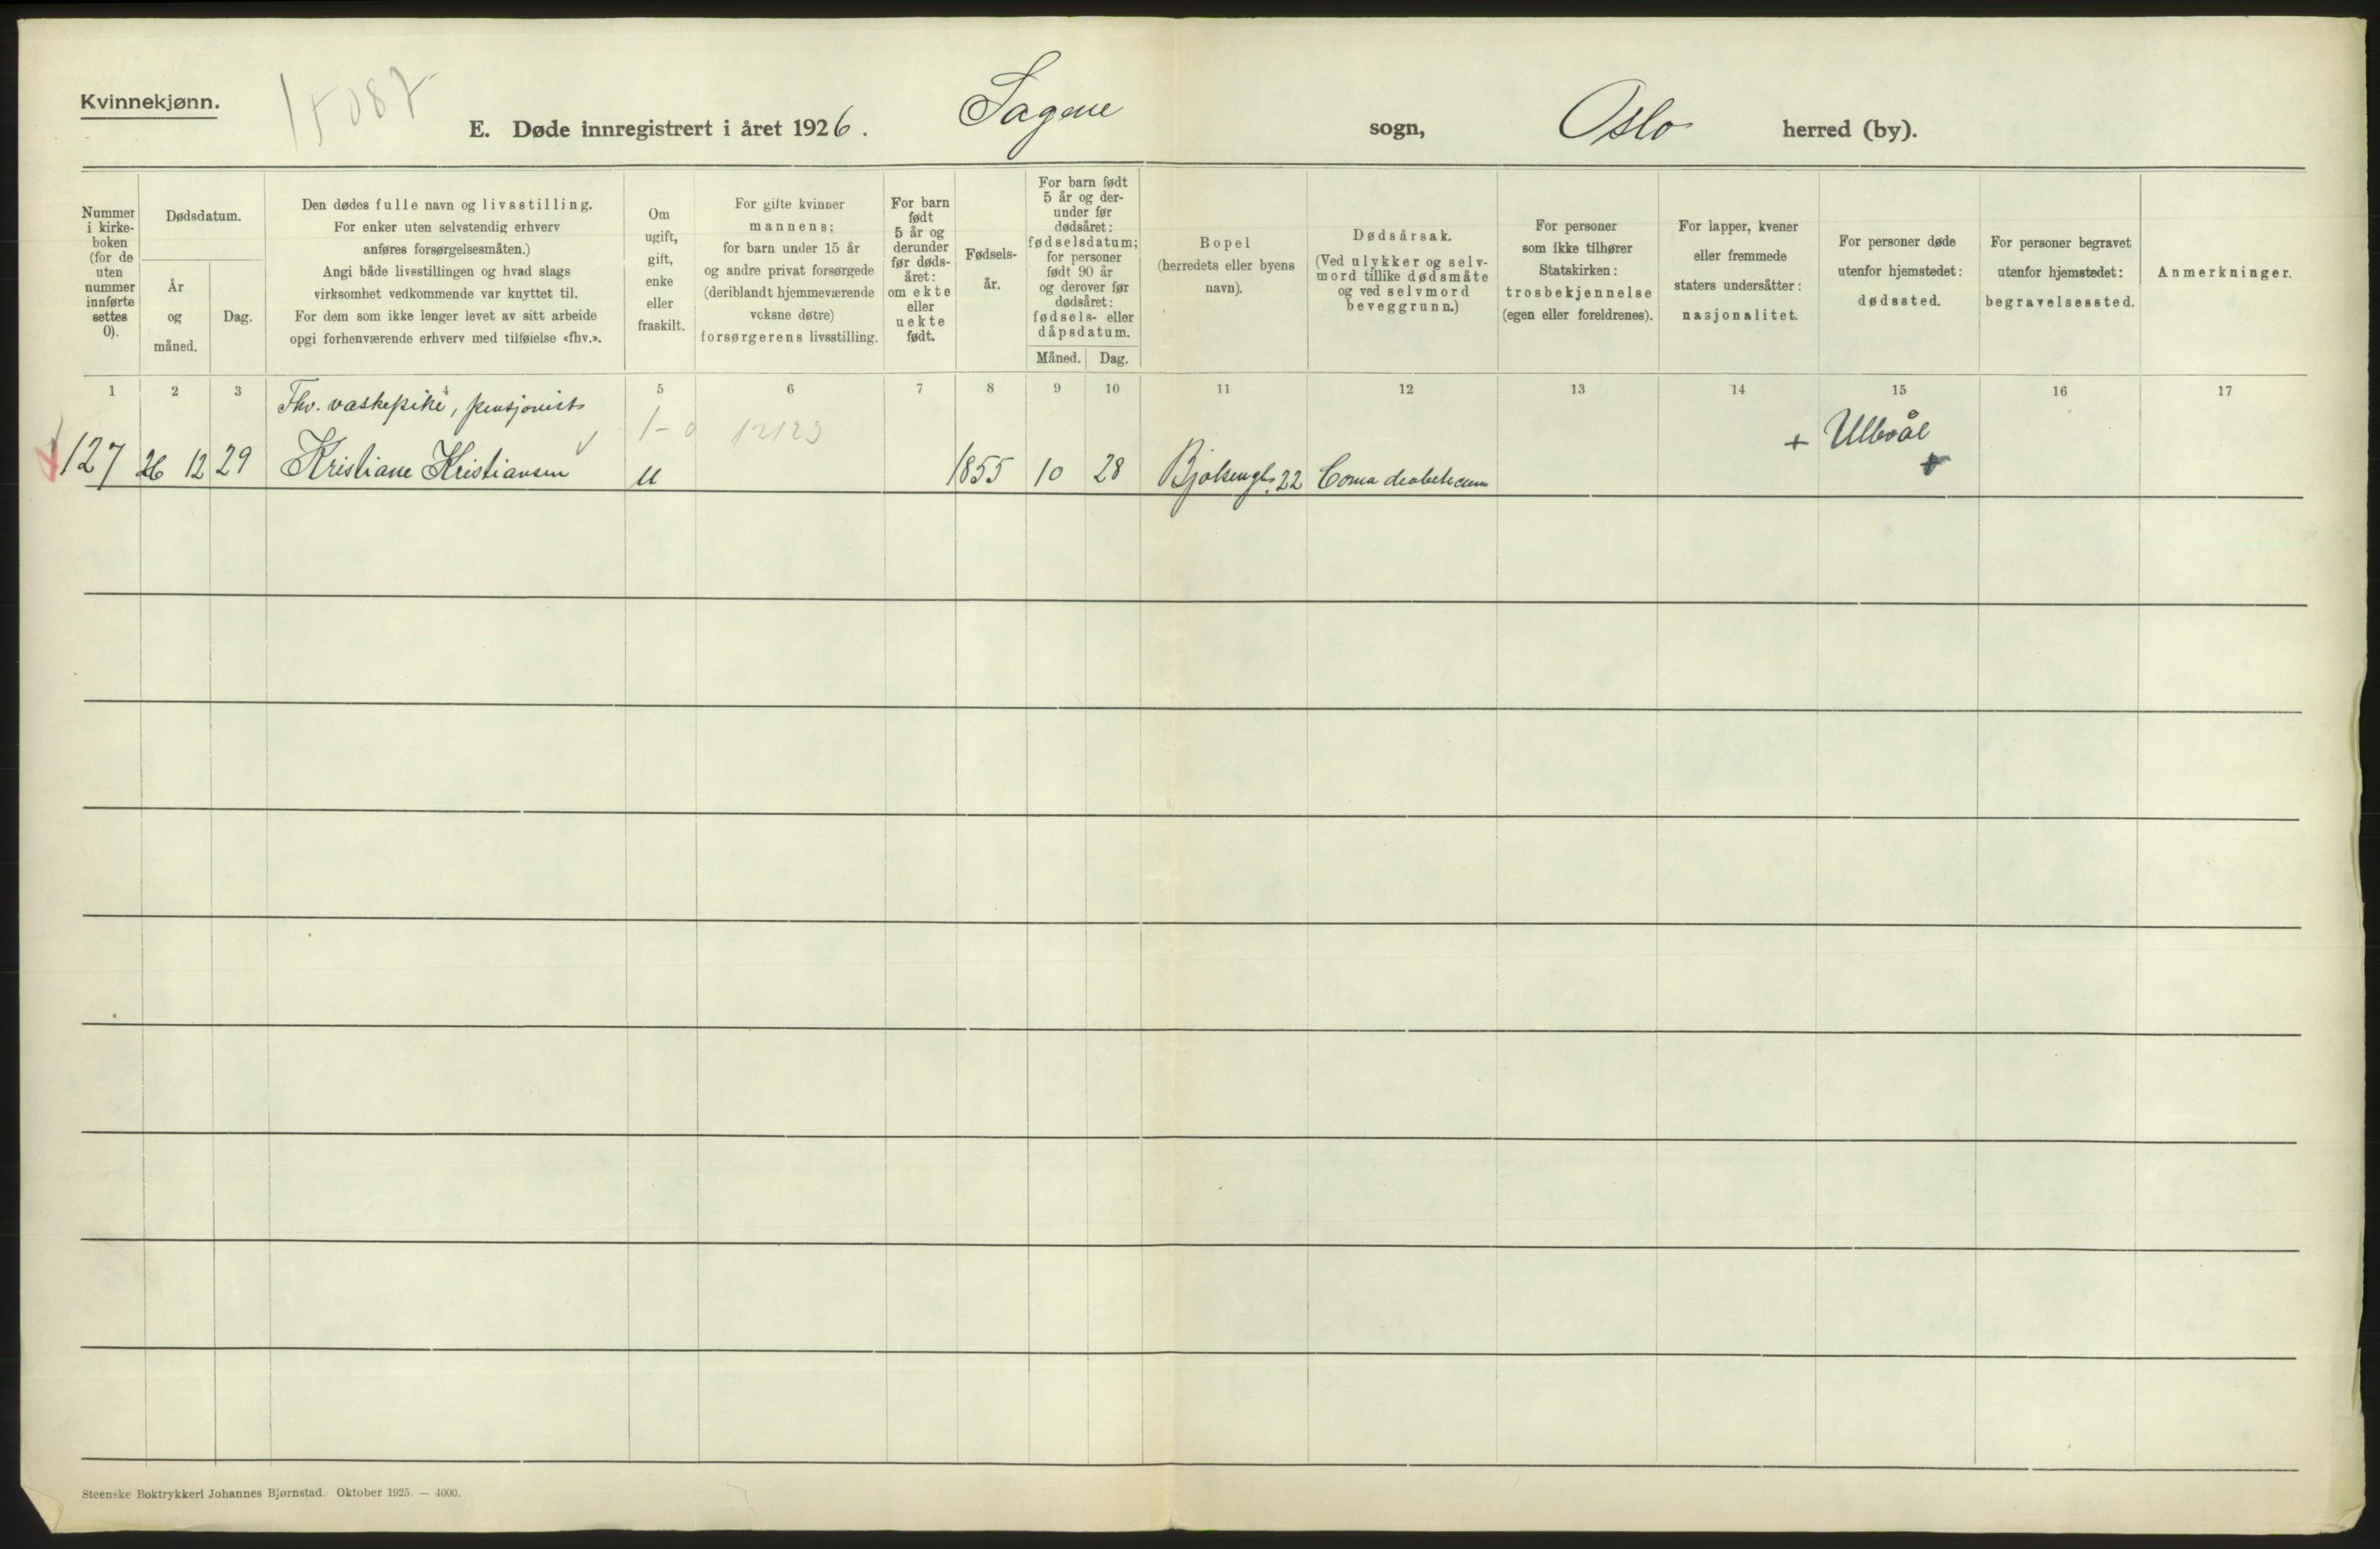 Kvinnekjønn.
E. Døde innregistrert i året 1926. Sagene sogn, Oslo herred (by).
Nummer i kirke-boken (for de uten nummer innførte settes 0).
Dødsdatum.
År og måned.
Dag.
Den dødes fulle navn og livsstilling.
For enker uten selvstendig erhverv
anføres forsørgelsesmåten.)
Angi både livsstillingen og hvad slags
virksomhet vedkommende var knyttet til.
For dem som ikke lenger levet av sitt arbeide
opgi forhenværende erhverv med tilføielse «fhv.».
Om
ugift,
gift,
enke
eller
fraskilt.
For gifte kvinner
mannens;
for barn under 15 år
og andre privat forsørgede
(deriblandt hjemmeværende
voksne døtre)
forsørgerens livsstilling.
For barn
født
5 år og
derunder
før døds-
året:
om ekte
eller
uekte
født.
Fødsels-
år.
For barn født
5 år og der-
under før
dødsåret:
fødselsdatum;
for personer
født 90 år
og derover før
dødsåret:
fødsels- eller
dåpsdatum.
Måned. Dag.
Bopel
(herredets eller byens
navn).
Dødsårsak.
(Ved ulykker og selv-
mord tillike dødsmåte
og ved selvmord
beveggrunn.)
For personer
som ikke tilhører
Statskirken:
trosbekjennelse
(egen eller foreldrenes).
For lapper, kvener
eller fremmede
staters undersåtter:
nasjonalitet.
For personer døde
utenfor hjemstedet:
dødssted.
For personer begravet
utenfor hjemstedet:
begravelsessted.
Anmerkninger.
1 2 3 4 5 6 7 8 9 10 11 12 13 14 15 16 17
Fhv. vaskepike, pensjonist
1-0 12129 + Ullevål
127 26 12 29 Kristiane Kristiansen u 1855 10 28 Bjølsengt. 22 Coma diabeticum +
Steenske Boktrykkeri Johannes Bjørnstad. Oktober 1925. — 4000.